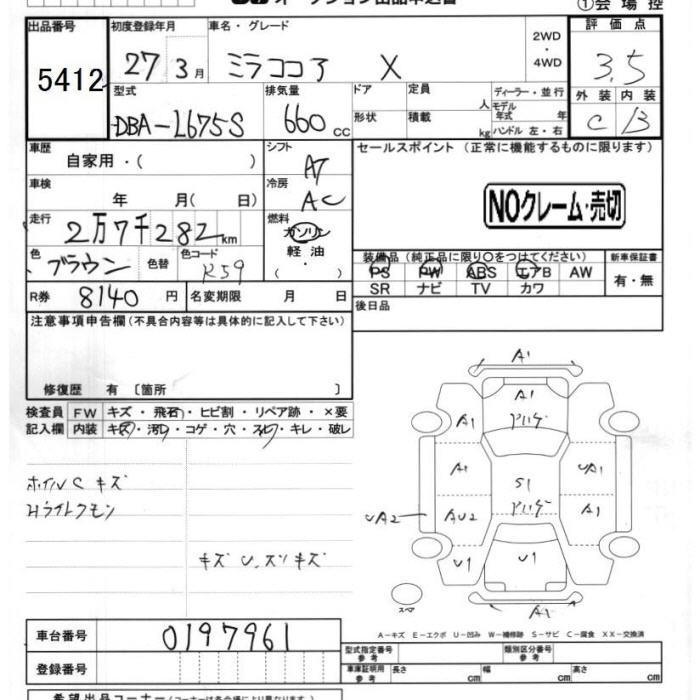 オークション出品申込書 ①会場控
出品番号 初度登録年月 車名・グレード 2WD ・ 4WD 評価点
5412 27年 3月 ミラココア X 3.5
型式 排気量 ドア 定員 人 ディーラー・並行 外装 内装
DBA-L675S 660cc 形状 積載 kg モデル年式 年 ハンドル 左・右 C B
車歴 自家用・( ) シフト AT セールスポイント (正常に機能するものに限ります)
車検 年 月( 日) 冷房 AC
NOクレーム・売切
走行 2万7千282km 燃料 ガソリン
軽油・( )
色 ブラウン 色替 色コード R59
装備品 (純正品に限り○をつけてください) 新車保証書
PS PW ABS エアB AW 有・無
SR ナビ TV カワ
R券 8140円 名変期限 月 日 後日品
注意事項申告欄(不具合内容等は具体的に記入して下さい)
修復歴 有 〔箇所 〕
検査員 FW キズ・飛石・ヒビ割・リペア跡・×要
記入欄 内装 キズ・汚レ・コゲ・穴・スレ・キレ・破レ
ホイルC キズ
Hライトクモリ
キズ U.スリキズ
A1
A1
A1 A1
A1 UA1
S1
UA2 AU2 A1
U1 U1
スペア
A1
A-キズ E-エクボ U-凹み W-補修跡 S-サビ C-腐食 XX-交換済
車台番号 0197961 型式指定番号 参考 類別区分番号 参考
登録番号 車庫証明用 参考 長さ cm 幅 cm 高さ cm
希望出品コーナー(コーナーは各会場により異なります)